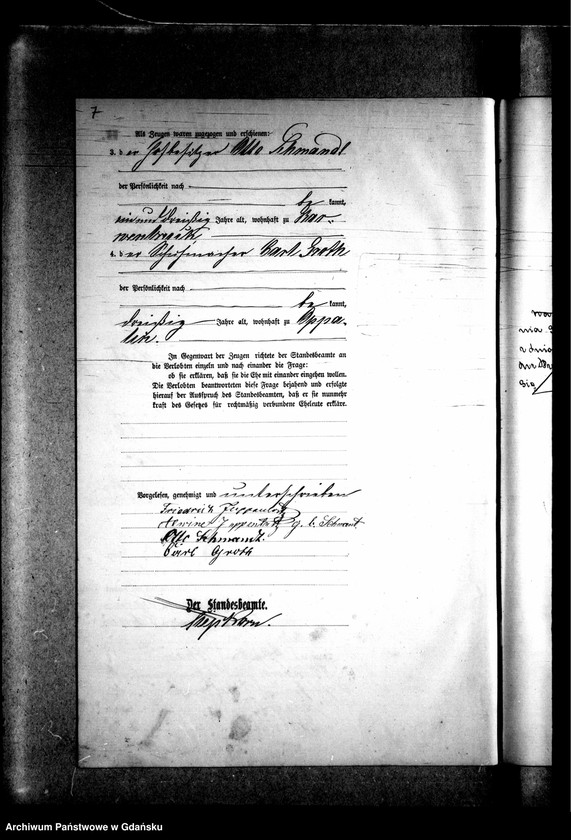 7
Als Zeugen waren zugezogen und erschienen:
3. der Hofbesitzer Otto Schmandt
der Persönlichkeit nach
be kannt,
einunddreißig Jahre alt, wohnhaft zu
4. der Schuhmacher Carl Groth
der Persönlichkeit nach
be kannt,
dreißig Jahre alt, wohnhaft zu Oppa-
lin.
Im Gegenwart der Zeugen richtete der Standesbeamte an
die Verlobten einzeln und nach einander die Frage:
ob sie erklären, daß sie die Ehe mit einander eingehen wollen.
Die Verlobten beantworteten diese Frage bejahend und erfolgte
hierauf der Ausspruch des Standesbeamten, daß er sie nunmehr
kraft des Gesetzes für rechtmäßig verbundene Eheleute erkläre.
Vorgelesen, genehmigt und unterschrieben
Friedrich
Otto Schmandt.
Carl Groth
Der Standesbeamte.
Archiwum Państwowe w Gdańsku